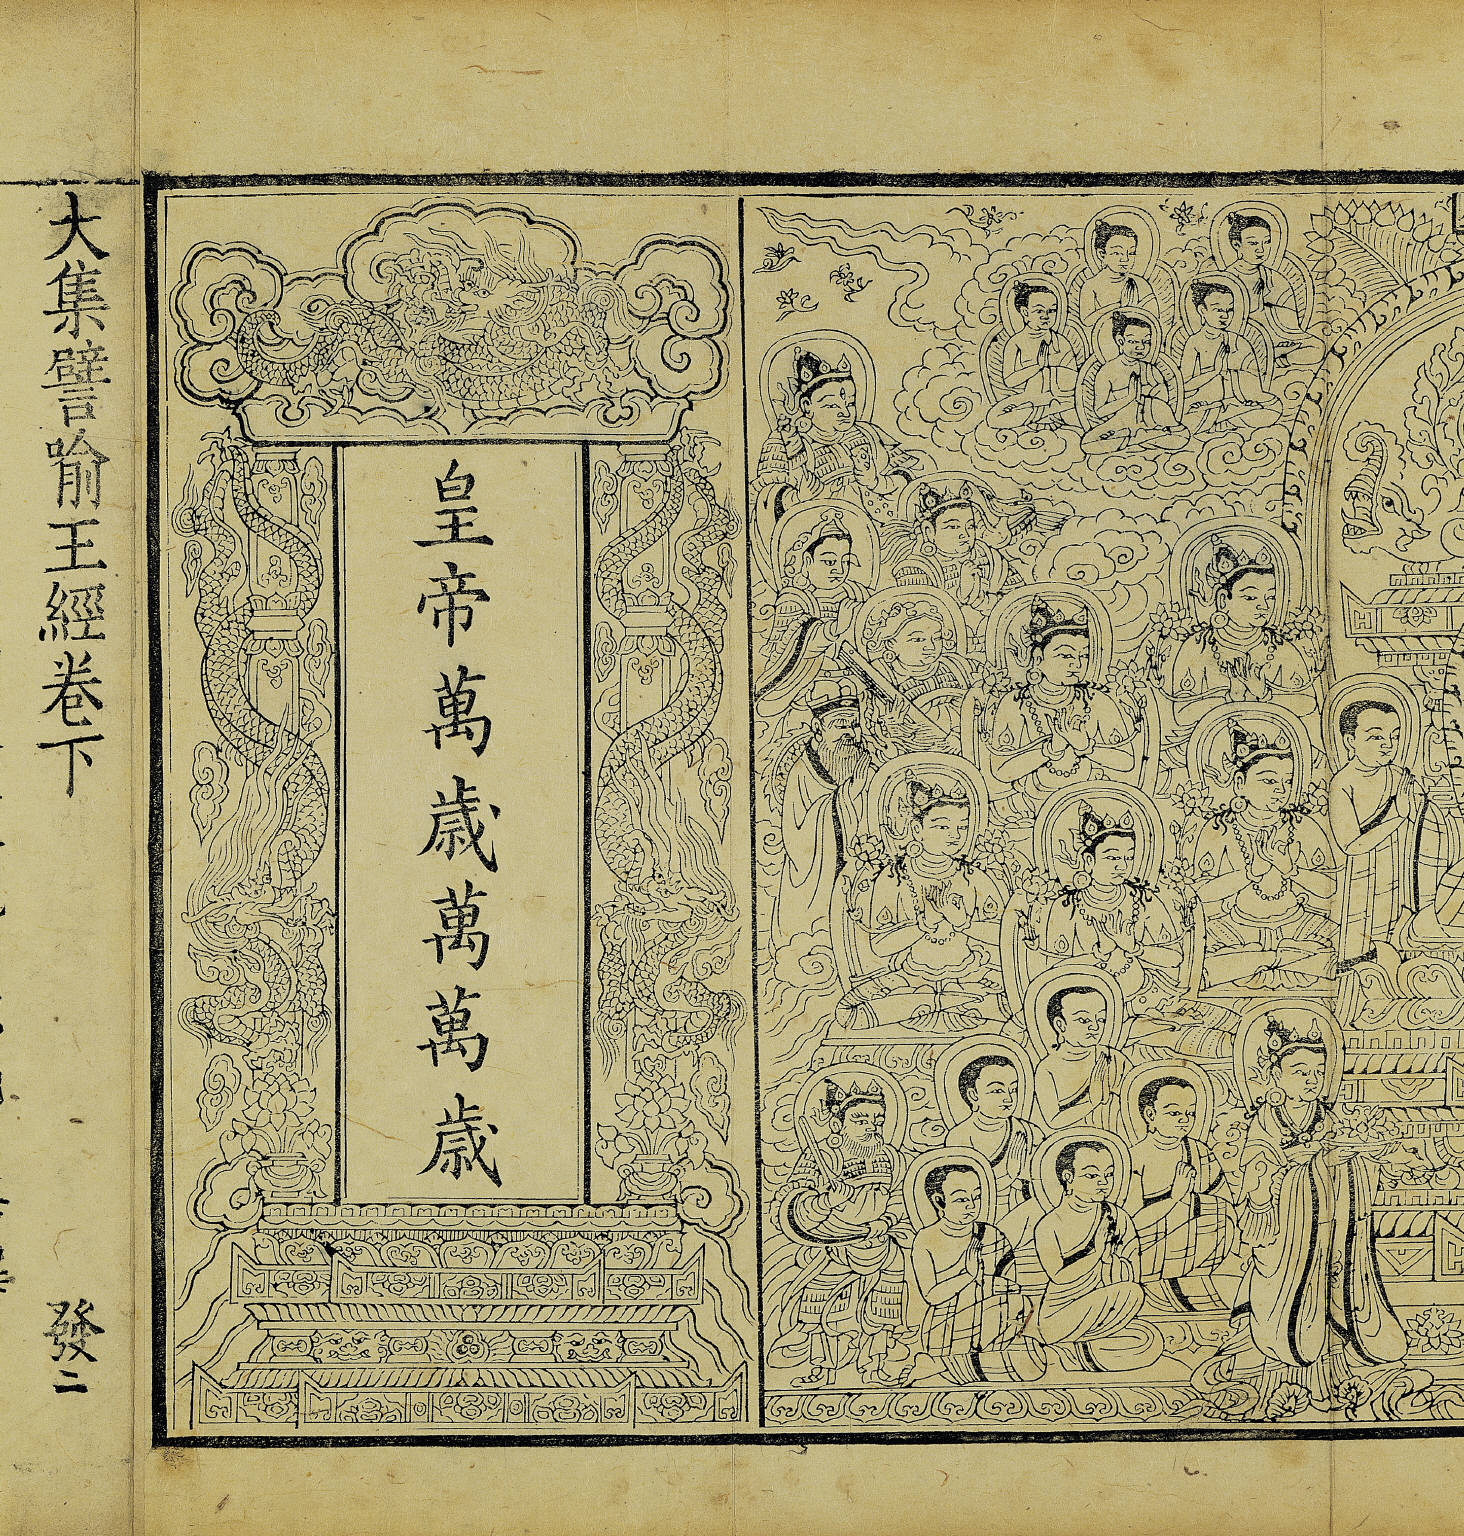 皇帝萬歲萬萬歲
大集譬喻王經卷下
發二